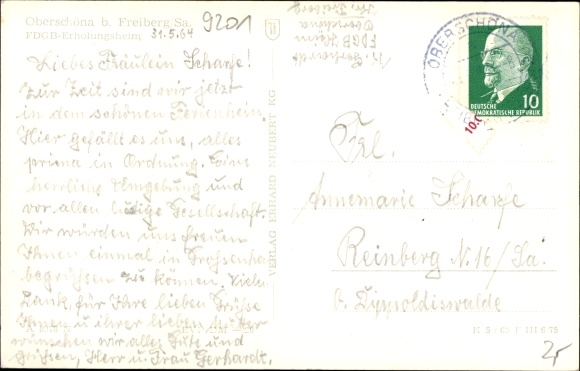 Oberschöna b. Freiberg Sa.
FDGB-Erholungsheim
31.5.64
9201
Liebes Fräulein Scharfe!
Zur Zeit sind wir jetzt
in dem schönen Ferienheim.
Hier gefällt es uns, alles
prima in Ordnung. Eine
herrliche Umgebung und
vor allen lustige Gesellschaft.
Wir würden uns freuen
Ihnen einmal in
begrüßen zu können. Vielen
Dank, für Ihre lieben Grüße
Ihnen u. ihrer lieben Mutter
wünschen wir alles Gute und
grüßen, Herr u. Frau Gerhardt.
VERLAG ERHARD NEUBERT KG
Gerhardt
FDGB Heim
Oberschöna
Kr. Freiberg
OBERSCHÖNA
DEUTSCHE
DEMOKRATISCHE REPUBLIK
10
Frl.
Annemarie Scharfe
Reinberg N. 16/Sa.
b. Dippoldiswalde